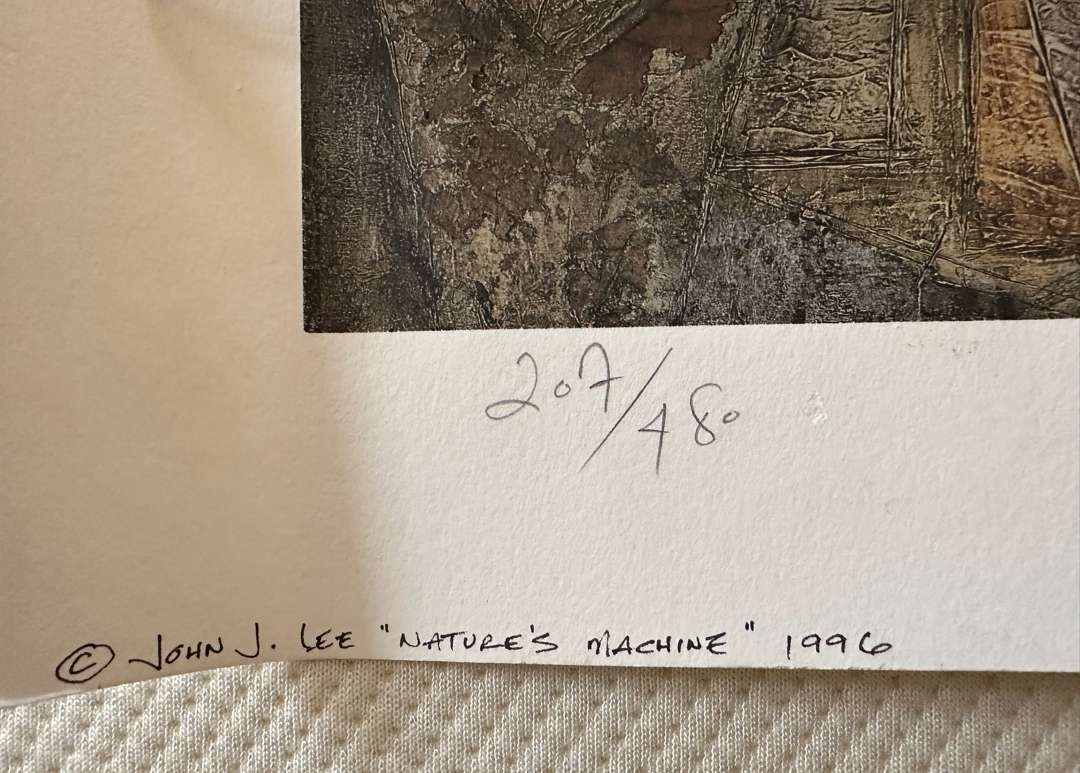 207/480
© JOHN J. LEE "NATURE'S MACHINE" 1996